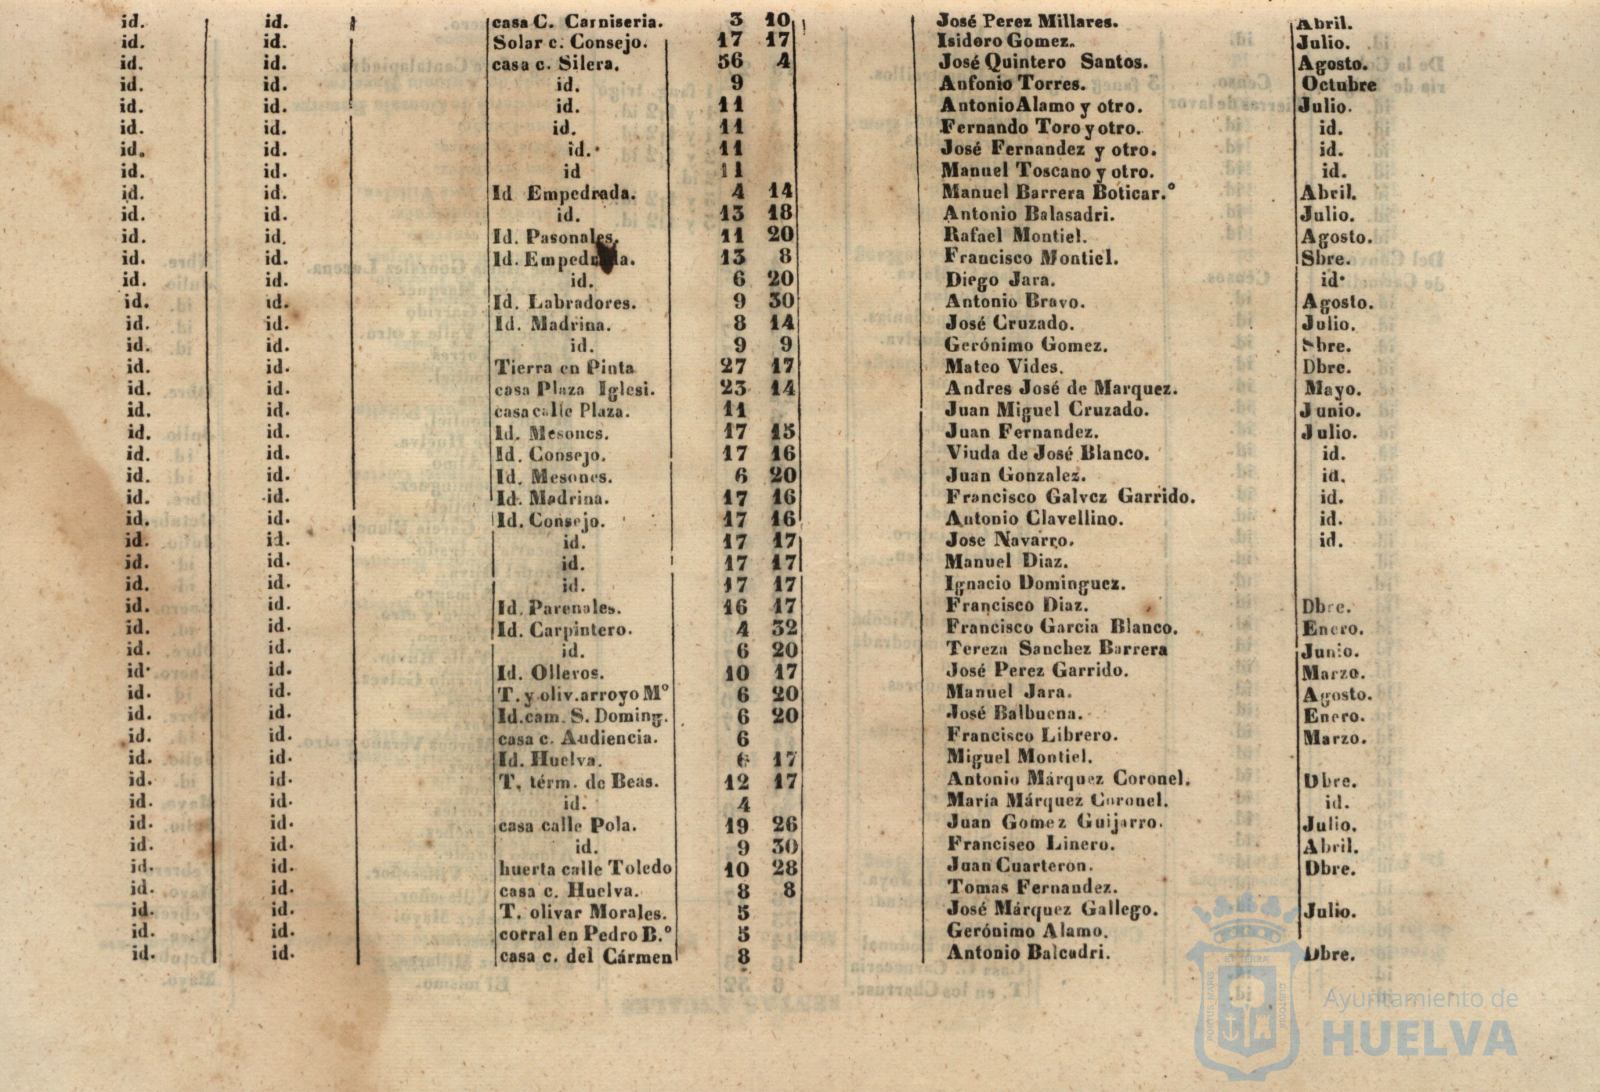 id. id. casa C. Carniseria. 3 10 José Perez Millares. Abril.
id. id. Solar c. Consejo. 17 17 Isidoro Gomez. Julio.
id. id. casa c. Silera. 56 4 José Quintero Santos. Agosto.
id. id. id. 9 Anfonio Torres. Octubre
id. id. id. 11 Antonio Alamo y otro. Julio.
id. id. id. 11 Fernando Toro y otro. id.
id. id. id. 11 José Fernandez y otro. id.
id. id. id 11 Manuel Toscano y otro. id.
id. id. Id Empedrada. 4 14 Manuel Barrera Boticar.º Abril.
id. id. id. 13 18 Antonio Balasadri. Julio.
id. id. Id. Pasonales. 11 20 Rafael Montiel. Agosto.
id. id. Id. Empedrada. 13 8 Francisco Montiel. Sbre.
id. id. id. 6 20 Diego Jara. id.
id. id. Id. Labradores. 9 30 Antonio Bravo. Agosto.
id. id. Id. Madrina. 8 14 José Cruzado. Julio.
id. id. id. 9 9 Gerónimo Gomez. Sbre.
id. id. Tierra en Pinta 27 17 Mateo Vides. Dbre.
id. id. casa Plaza Iglesi. 23 14 Andres José de Marquez. Mayo.
id. id. casa calle Plaza. 11 Juan Miguel Cruzado. Junio.
id. id. Id. Mesones. 17 15 Juan Fernandez. Julio.
id. id. Id. Consejo. 17 16 Viuda de José Blanco. id.
id. id. Id. Mesones. 6 20 Juan Gonzalez. id.
id. id. Id. Madrina. 17 16 Francisco Galvez Garrido. id.
id. id. Id. Consejo. 17 16 Antonio Clavellino. id.
id. id. id. 17 17 Jose Navarro. id.
id. id. id. 17 17 Manuel Diaz.
id. id. id. 17 17 Ignacio Dominguez.
id. id. Id. Parenales. 16 17 Francisco Diaz. Dbre.
id. id. Id. Carpintero. 4 32 Francisco Garcia Blanco. Enero.
id. id. id. 6 20 Tereza Sanchez Barrera Junio.
id. id. Id. Olleros. 10 17 José Perez Garrido. Marzo.
id. id. T. y oliv. arroyo Mº 6 20 Manuel Jara. Agosto.
id. id. Id. cam. S. Doming. 6 20 José Balbuena. Enero.
id. id. casa c. Audiencia. 6 Francisco Librero. Marzo.
id. id. Id. Huelva. 6 17 Miguel Montiel.
id. id. T. térm. de Beas. 12 17 Antonio Márquez Coronel. Dbre.
id. id. id. 4 María Márquez Coronel. id.
id. id. casa calle Pola. 19 26 Juan Gomez Guijarro. Julio.
id. id. id. 9 30 Francisco Linero. Abril.
id. id. huerta calle Toledo 10 28 Juan Cuarteron. Dbre.
id. id. casa c. Huelva. 8 8 Tomas Fernandez.
id. id. T. olivar Morales. 5 José Márquez Gallego. Julio.
id. id. corral en Pedro B.º 5 Gerónimo Alamo.
id. id. casa c. del Cármen 8 Antonio Balcadri. Dbre.
Ayuntamiento de
HUELVA